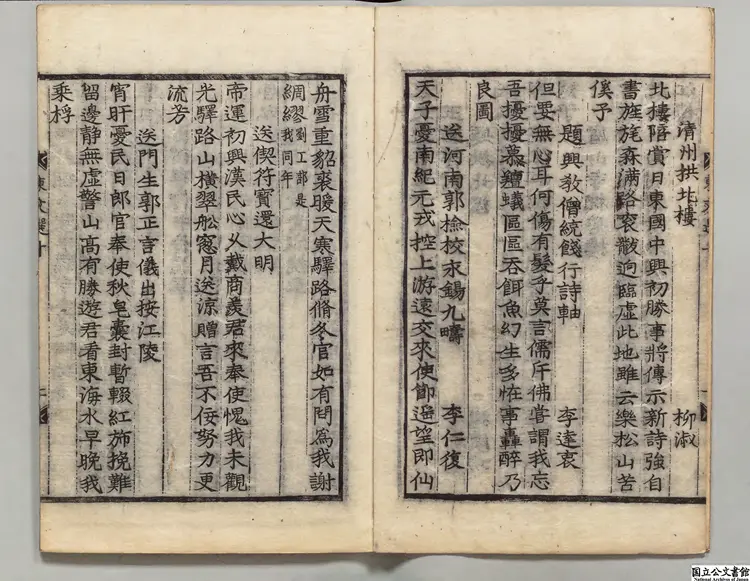 清州拱北樓 柳淑
北樓陪賞日東國中興初勝事將傳示新詩強自
書旌旄森滿路裘散逈臨虛此地雖云樂松山苦
傒予
題興教僧統餞行詩軸 李達衷
但要無心耳何傷有髮乎莫言儒斥佛甞謂我忘
吾擾擾慕羶蟻區區吞餌魚幻生多怪事轟醉乃
良圖
送河南郭撿校永錫九疇 李仁復
天子憂南紀元戎控上游遠交來使節遥望即仙
舟雪重貂裘暖天寒驛路脩冬官如有問爲我謝
綢繆劉工部是我同年
送偰符寶還大明
帝運初興漢民心乆戴商羨君來奉使愧我未觀
光驛路山橫翠舩窓月送涼贈言吾不佞努力更
流芳
送門生郭正言儀出按江陵
宵旰憂民日郎官奉使秋皂囊封暫輟紅斾挽難
留邊靜無虛警山高有勝遊君看東海水早晚我
乘桴
東文選十
国立公文書館
National Archives of Japan